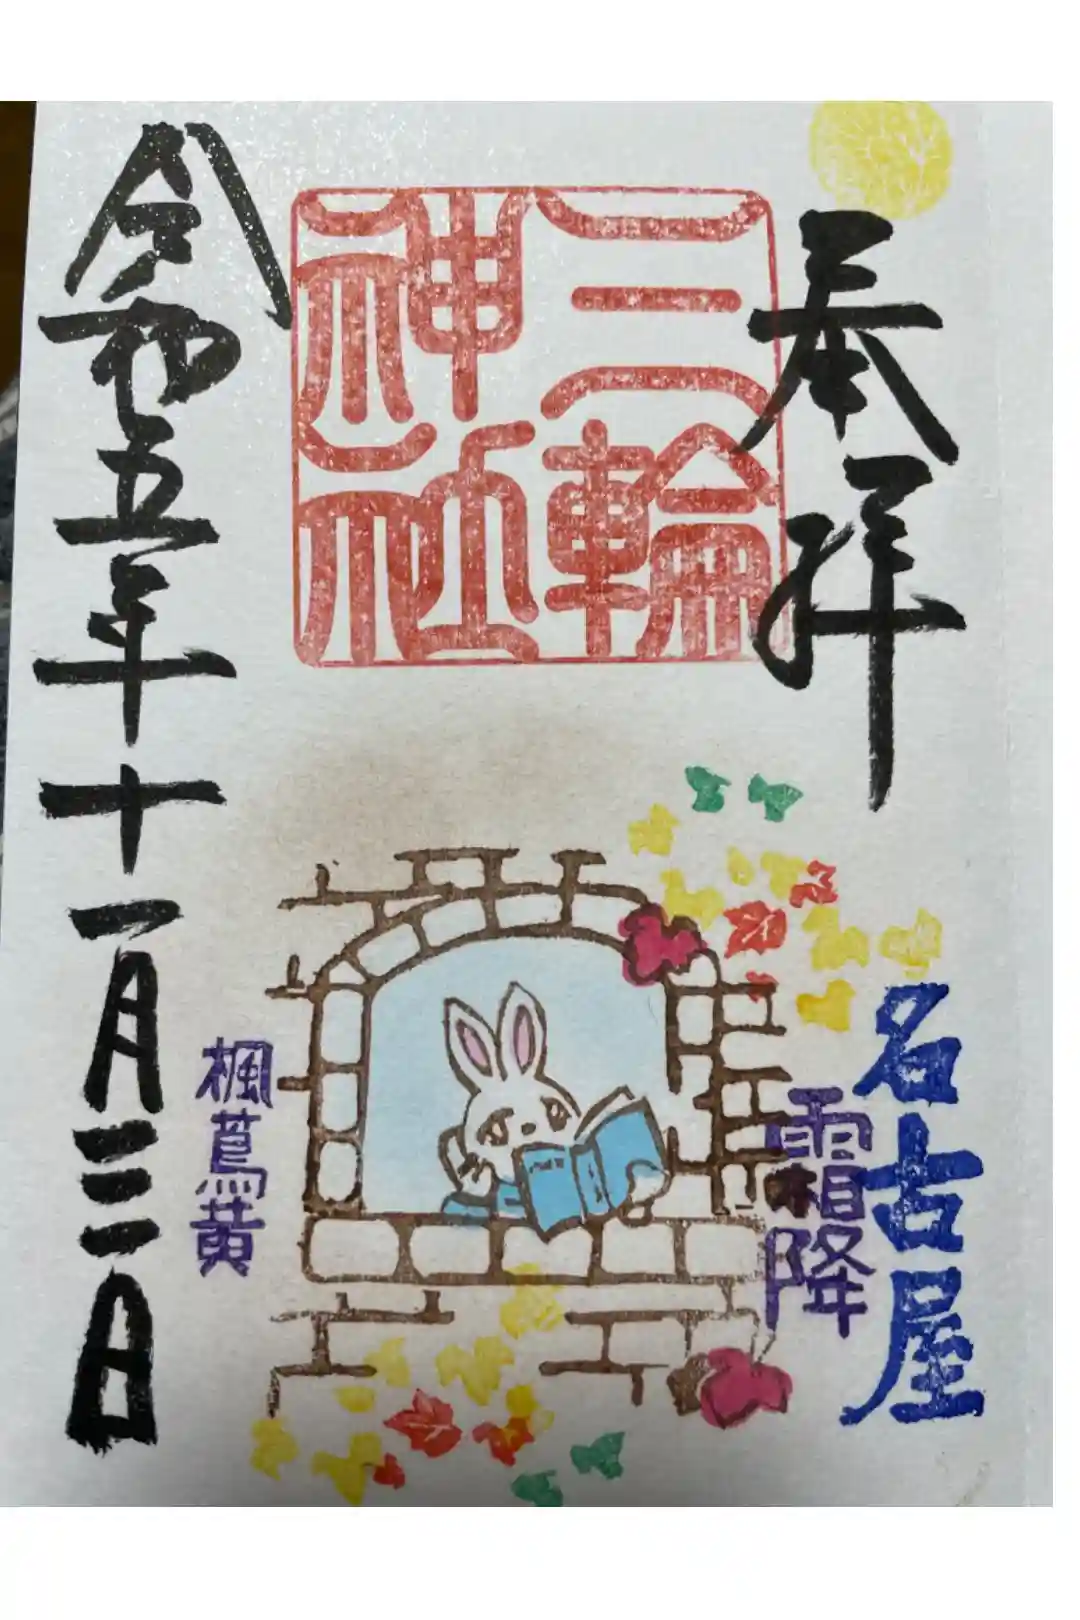 奉拝
名古屋
霜降
三輪
神社
楓蔦黄
令和五年十一月三日